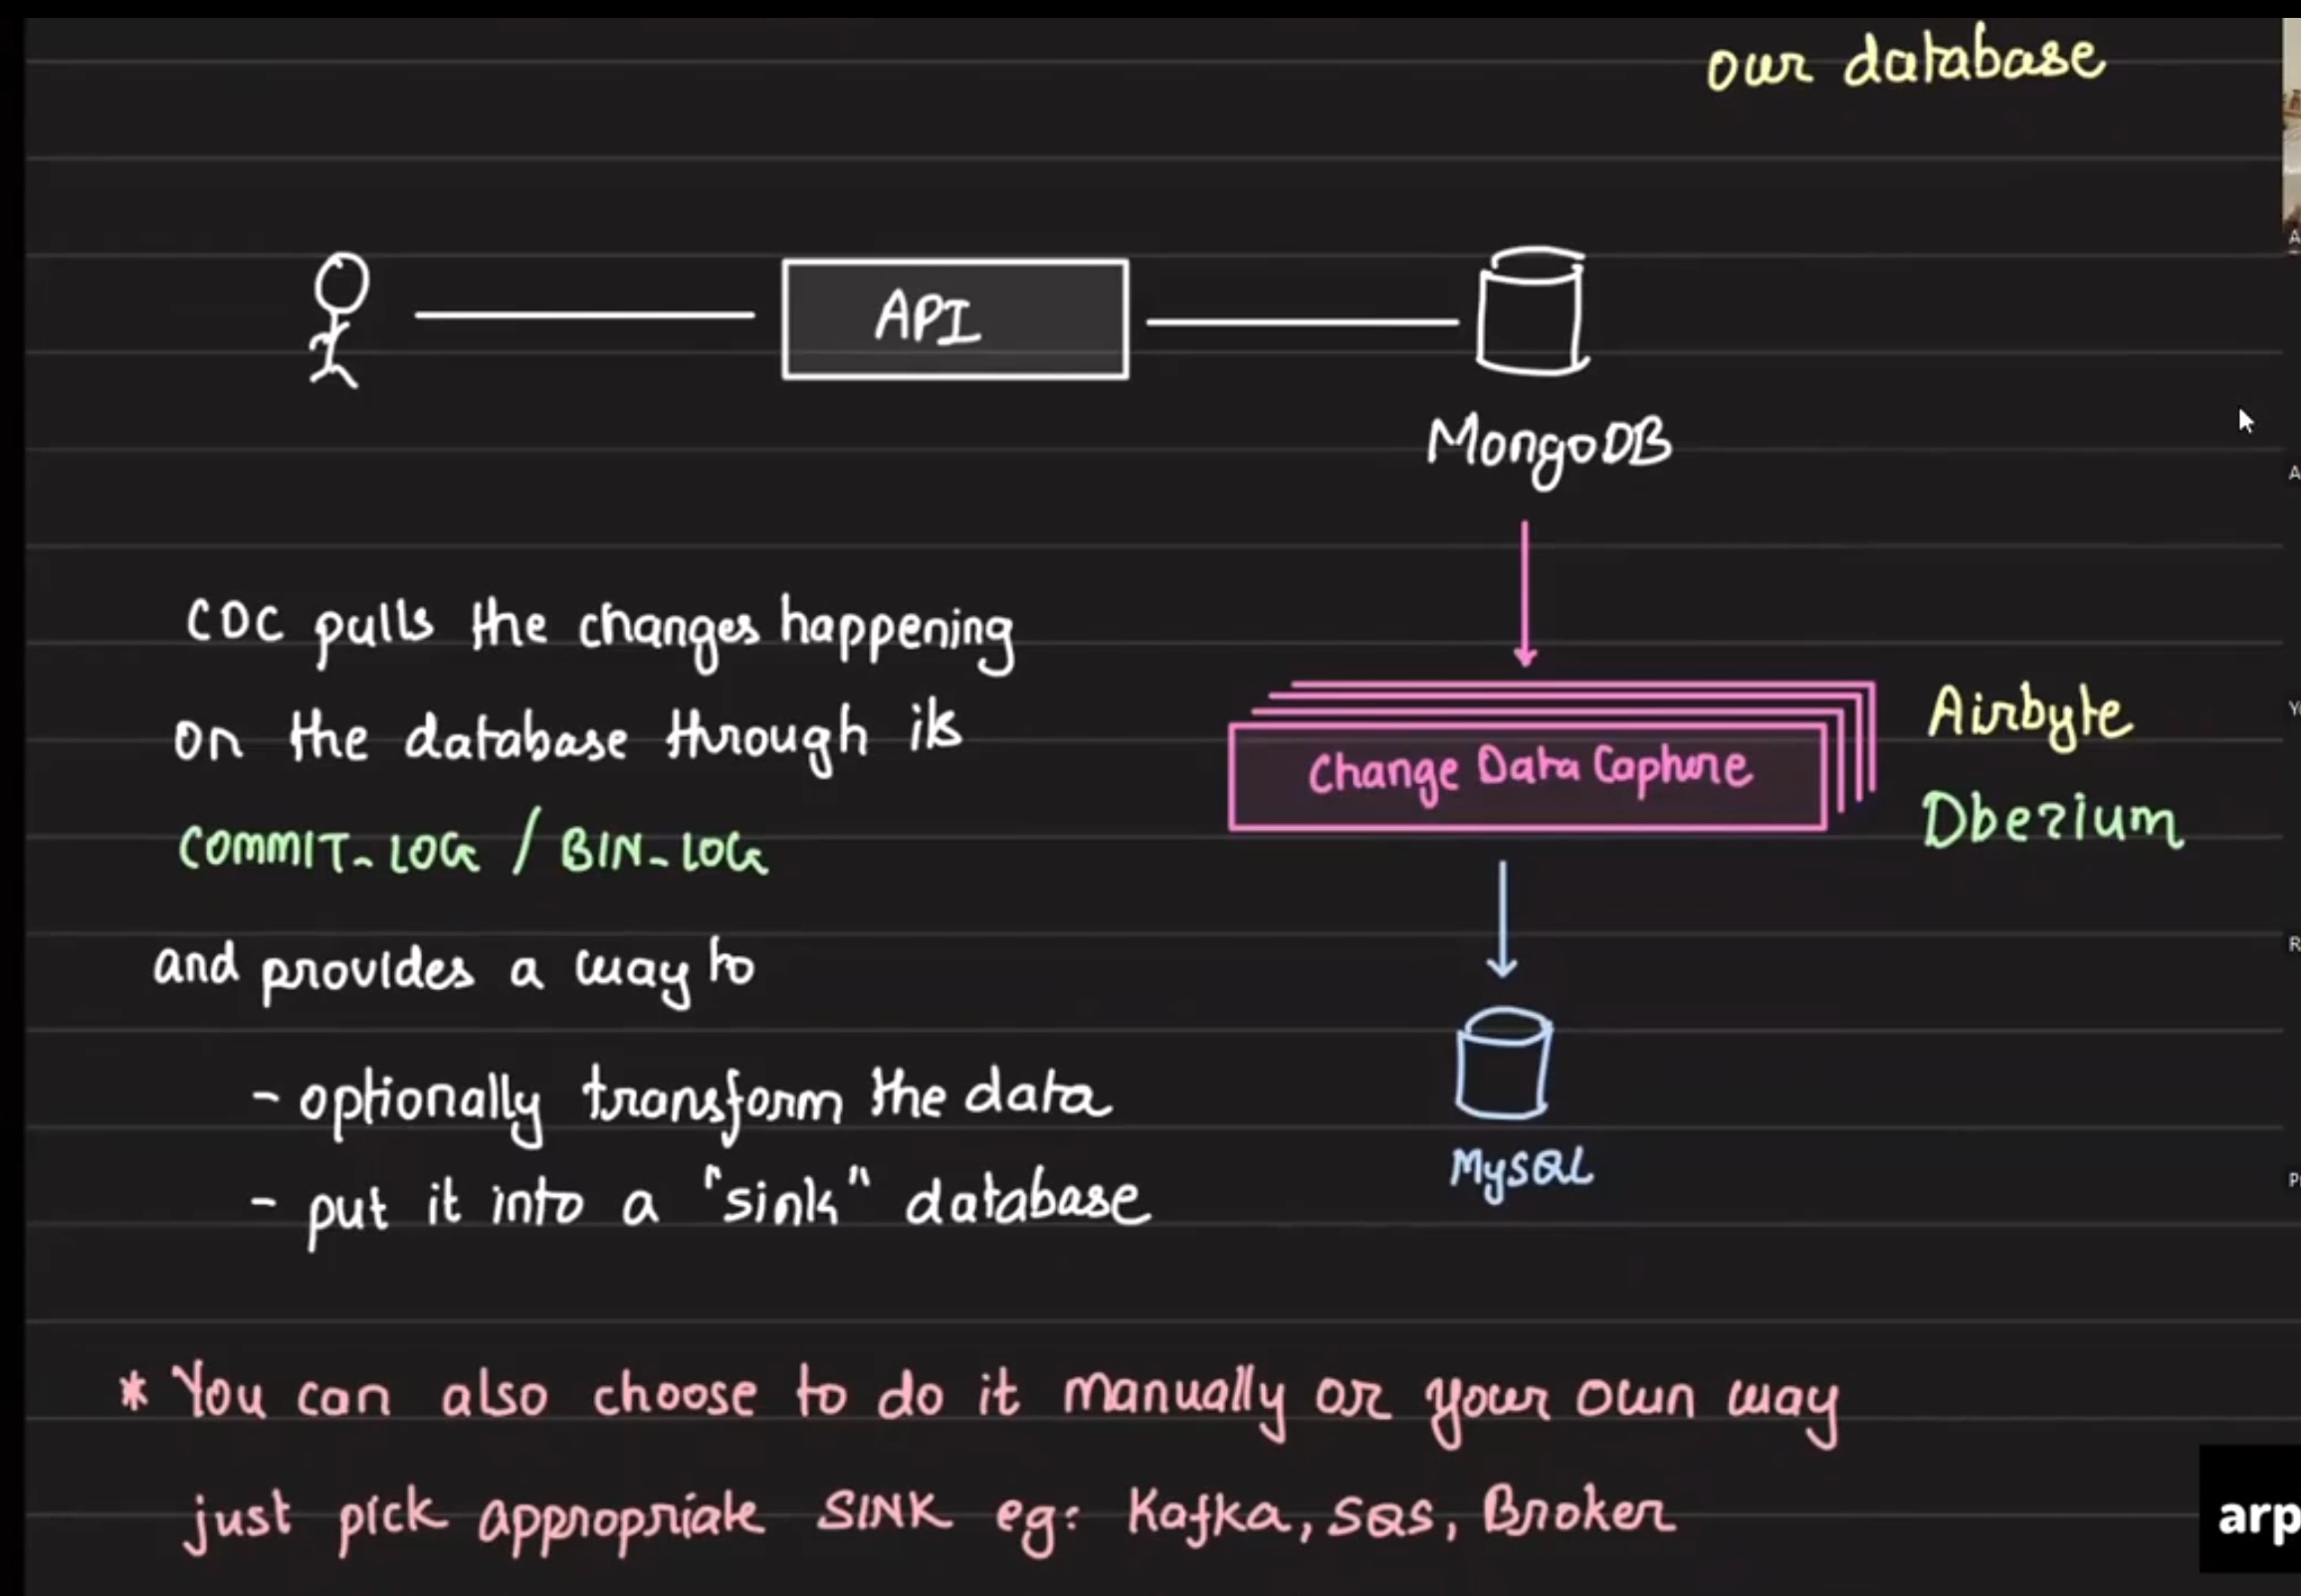 our database
API
MongoDB
CDC pulls the changes happening
on the database through its
COMMIT_LOG / BIN_LOG
and provides a way to
- optionally transform the data
- put it into a "sink" database
Change Data Capture
Airbyte
Dbezium
MySQL
* You can also choose to do it manually or your own way
just pick appropriate SINK eg: Kafka, SQS, Broker
arp